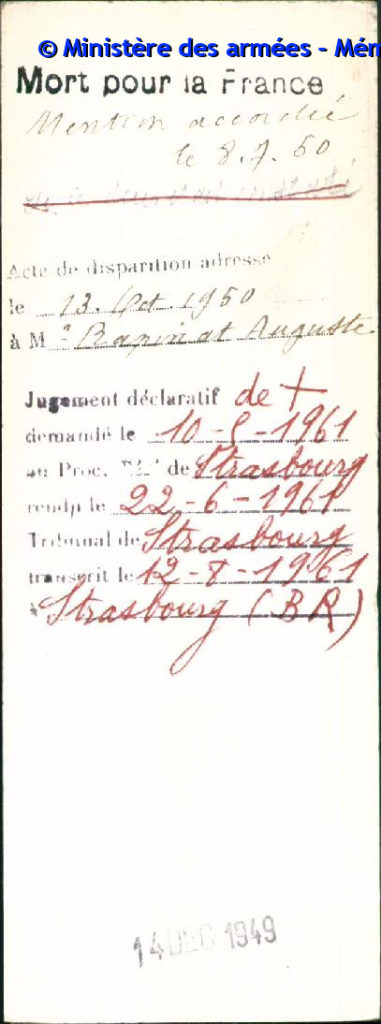 © Ministère des armées - Mém
Mort pour la France
Mention accordée
le 8.7.50
Acte de disparition adressé
le 13. Oct. 1950
à M Rapinat Auguste
Jugement déclaratif de +
demandé le 10-5-1961
au Proc. de Strasbourg
rendu le 22-6-1961
Tribunal de Strasbourg
transcrit le 12-8-1961
à Strasbourg (BR)
14 DEC 1949